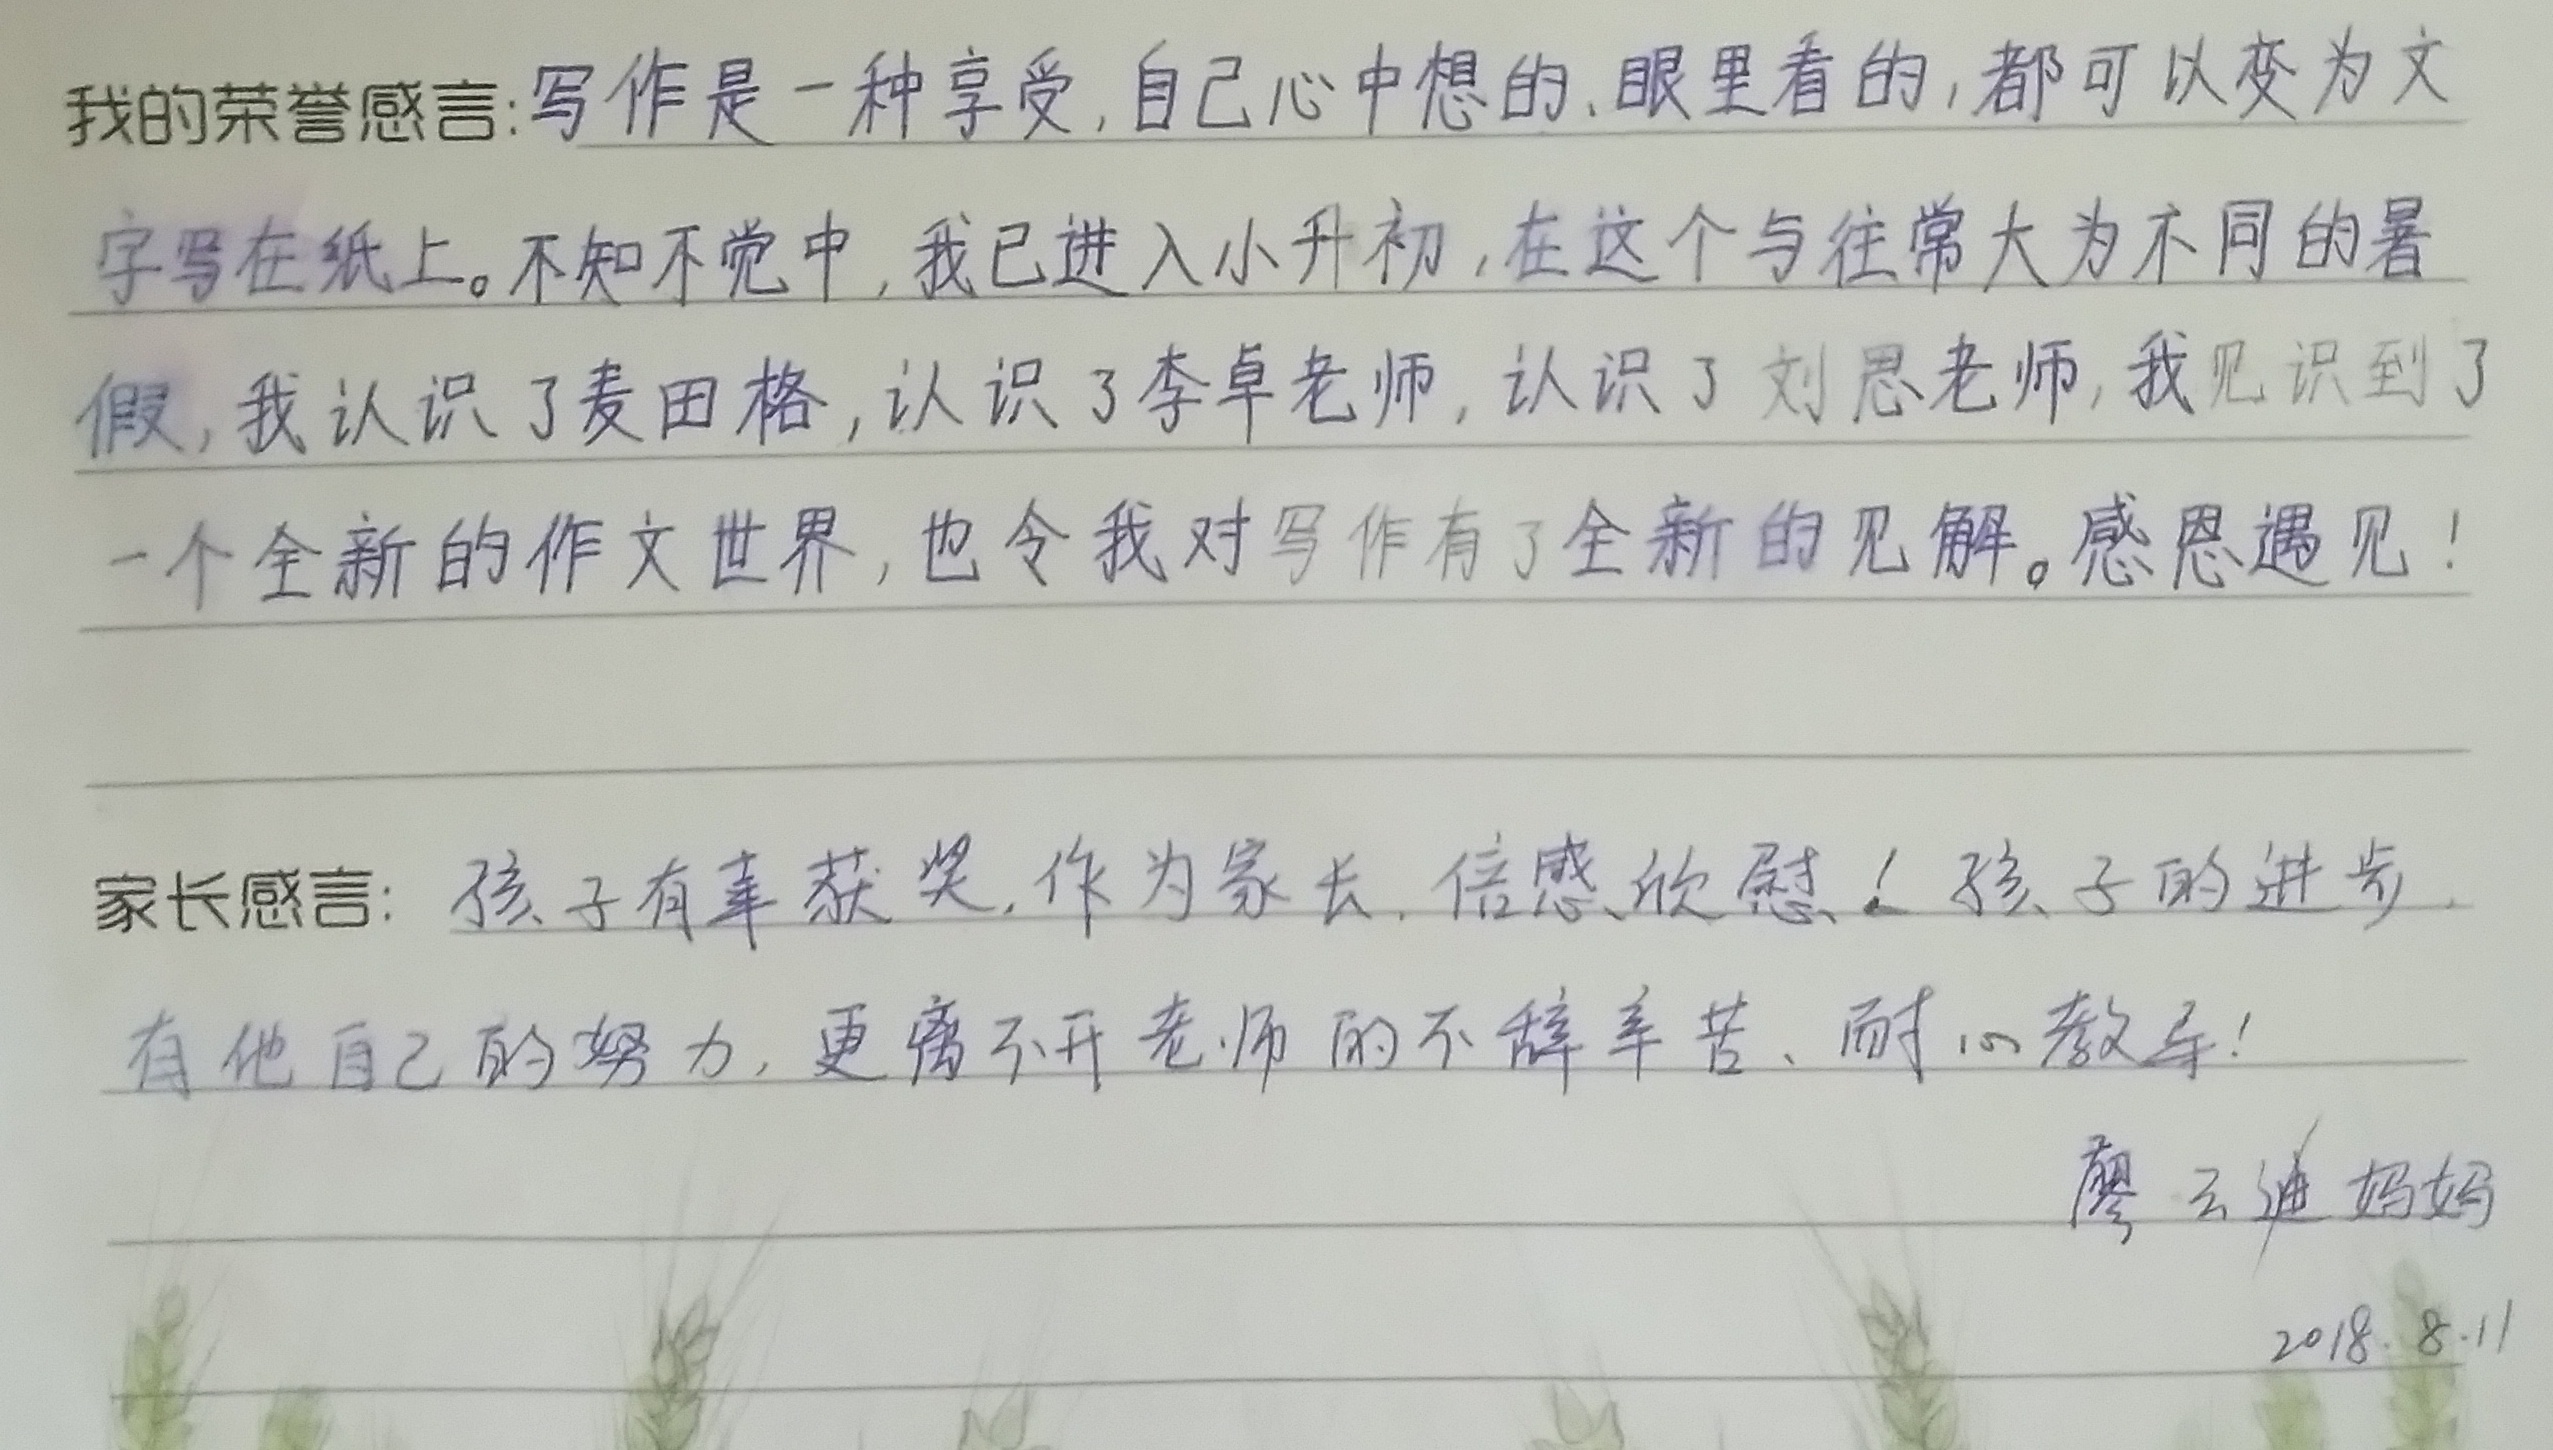 我的荣誉感言:写作是一种享受,自己心中想的、眼里看的,都可以变为文
字写在纸上。不知不觉中,我已进入小升初,在这个与往常大为不同的暑
假,我认识了麦田格,认识了李卓老师,认识了刘思老师,我见识到了
一个全新的作文世界,也令我对写作有了全新的见解。感恩遇见!
家长感言: 孩子有幸获奖,作为家长,倍感欣慰!孩子的进步,
有他自己的努力,更离不开老师的不辞辛苦、耐心教导!
廖云迪妈妈
2018.8.11